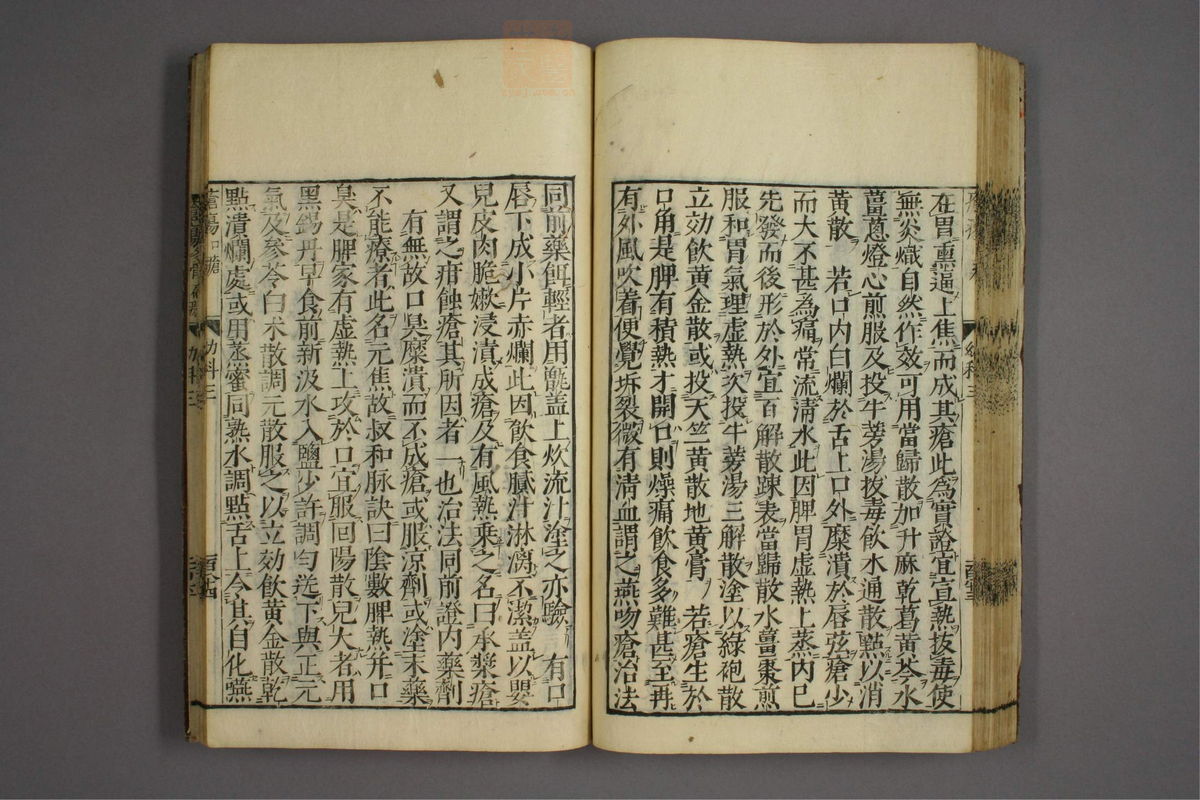 在胃熏逼上焦而成其瘡此為實證宜宣熱拔毒使
無炎熾自然作效可用當歸散加升麻乾葛黃芩水
薑蔥燈心煎服及投牛蒡湯拔毒飲水通散點以消
黃散　若口內白爛於舌上口外糜潰於唇弦瘡少
而大不甚為痛常流清水此因脾胃虛熱上蒸內已
先發而後形於外宜百解散踈表當歸散水薑棗煎
服和胃氣理虛熱次投牛蒡湯三解散塗以綠袍散
立効飲黃金散或投天竺黃散地黃膏　若瘡生於
口角是脾有積熱才開口則燥痛飲食多難甚至再
有外風吹着便覺坼裂微有清血謂之燕吻瘡治法
同前藥餌輕者用甑盖上炊流汁塗之亦驗　有口
唇下成小片赤爛此因飲食膩汁淋漓不潔盖以嬰
兒皮肉脆嫩浸漬成瘡及有風熱乘之名曰承漿瘡
又謂之疳蝕瘡其所因者一也治法同前證內藥劑
有無故口臭糜潰而不成瘡或服涼劑或塗末藥
不能療者此名元焦故叔和脉訣曰陰數脾熱并口
臭是脾家有虛熱上攻於口宜服回陽散兒大者用
黑錫丹早食前新汲水入鹽少許調勻送下與正元
氣及參苓白朮散調元散服之以立効飲黃金散乾
點潰爛處或用蒸蜜同熟水調點舌上令其自化嚥
幼科三